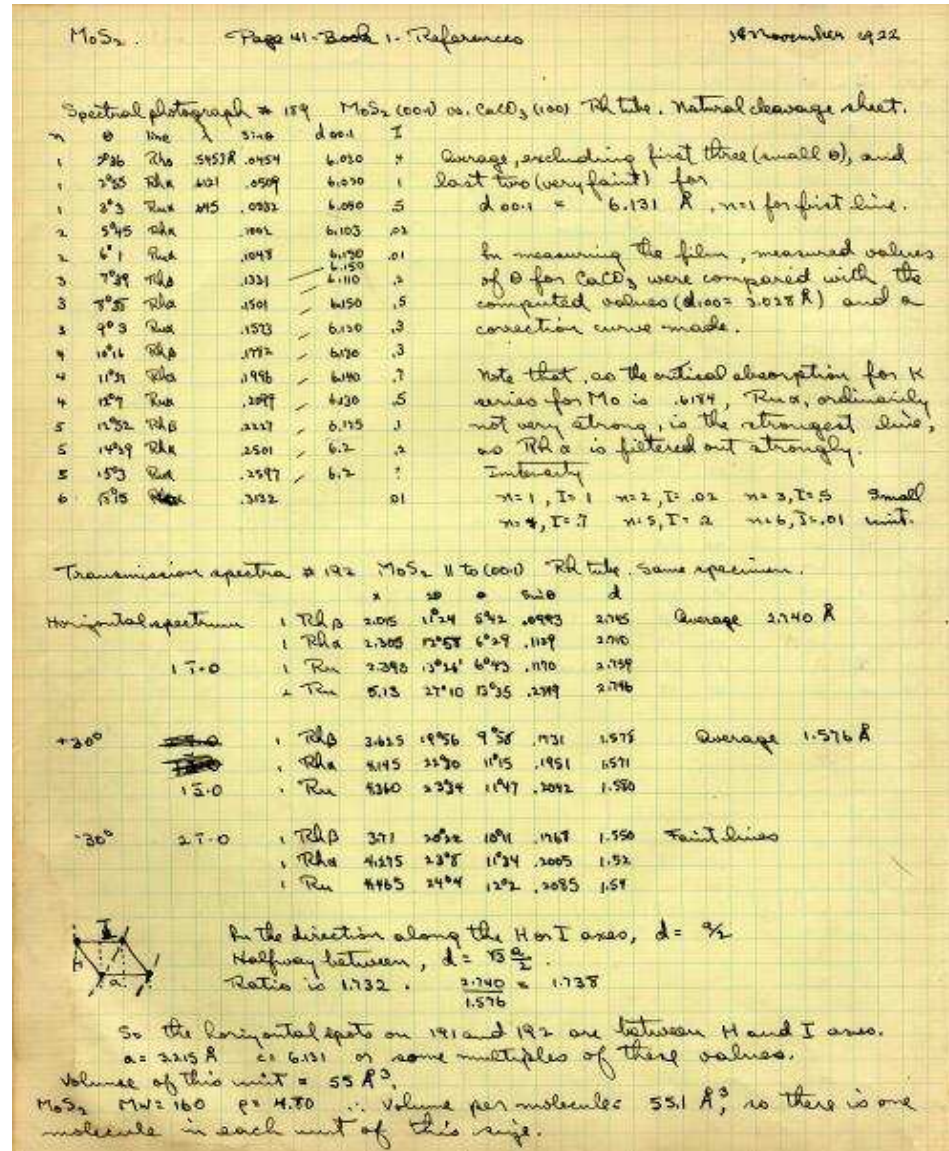 MoS₂. Page 41-Book 1-References 18 November 1922
Spectral photograph # 189 MoS₂ (00·1) vs. CaCO₃ (100) Rh tube. Natural cleavage sheet.
n θ line λ sin θ d 00·1 I
1 2°36 Rhβ .5453Å .0454 6.030
1 2°55 Rhα .6121 .0509 6.030 1
1 3°3 Ruα .0532 6.050 .5
2 5°45 Rhα .1002 6.103 .02
2 6°1 Ruα .1048 6.130 .01
6.150
3 7°39 Rhβ .1331 6.110 .2
3 8°38 Rhα .1501 6.150 .5
3 9°3 Ruα .1573 6.130 .3
4 10°16 Rhβ .1782 6.130 .3
4 11°31 Rhα .1996 6.140 .7
4 12°7 Ruα .2099 6.130 .5
5 12°52 Rhβ .2227 6.125 .1
5 14°29 Rhα .2501 6.2 .2
5 15°3 Ruα .2597 6.2 ?
6 .3132 .01
Average, excluding first three (small θ), and
last two (very faint) for
d 00·1 = 6.131 Å, n=1 for first line.
In measuring the film, measured values
of θ for CaCO₃ were compared with the
computed values (d100 = 3.028 Å) and a
correction curve made.
Note that, as the critical absorption for K
series for Mo is .6184, Ruα, ordinarily
not very strong, is the strongest line,
as Rh α is filtered out strongly.
Intensity
n=1, I=1 n=2, I=.02 n=3, I=.5 Small
n=4, I=.7 n=5, I=.2 n=6, I=.01 unit.
Transmission spectra # 192 MoS₂ 11 to (00·1) Rh tube. Same specimen.
x 2θ θ Sin θ d
Horizontal spectrum 1 Rh β 2.015 11°24 5°42 .0993 2.745 Average 2.740 Å
1 Rh α 2.305 12°58 6°29 .1129 2.710
1 1̄·0 1 Ru 2.393 13°26' 6°43 .1170 2.759
2 Ru 5.13 27°10 13°35 .2349 2.746
+30° 1 Rhβ 3.625 19°56 9°58 .1731 1.575 Average 1.576 Å
1 Rhα 4.145 22°30 11°15 .1951 1.571
1 2̄·0 1 Ru 4.360 23°34 11°47 .2042 1.580
-30° 2 1̄·0 1 Rhβ 3.71 20°22 10°11 .1768 1.550 Faint lines
1 Rhα 4.275 23°8 11°34 .2005 1.52
1 Ru 4.465 24°4 12°2 .2085 1.54
I
H
a
In the direction along the H or I axes, d = a/2
Halfway between, d = √3 a/2.
Ratio is 1.732. 2.740/1.576 = 1.738
So the horizontal spots on 191 and 192 are between H and I axes.
a = 3.215 Å c = 6.131 or some multiples of these values.
Volume of this unit = 55 Å³.
MoS₂ MW = 160 ρ = 4.80 ∴ Volume per molecule = 55.1 Å³, so there is one
molecule in each unit of this size.